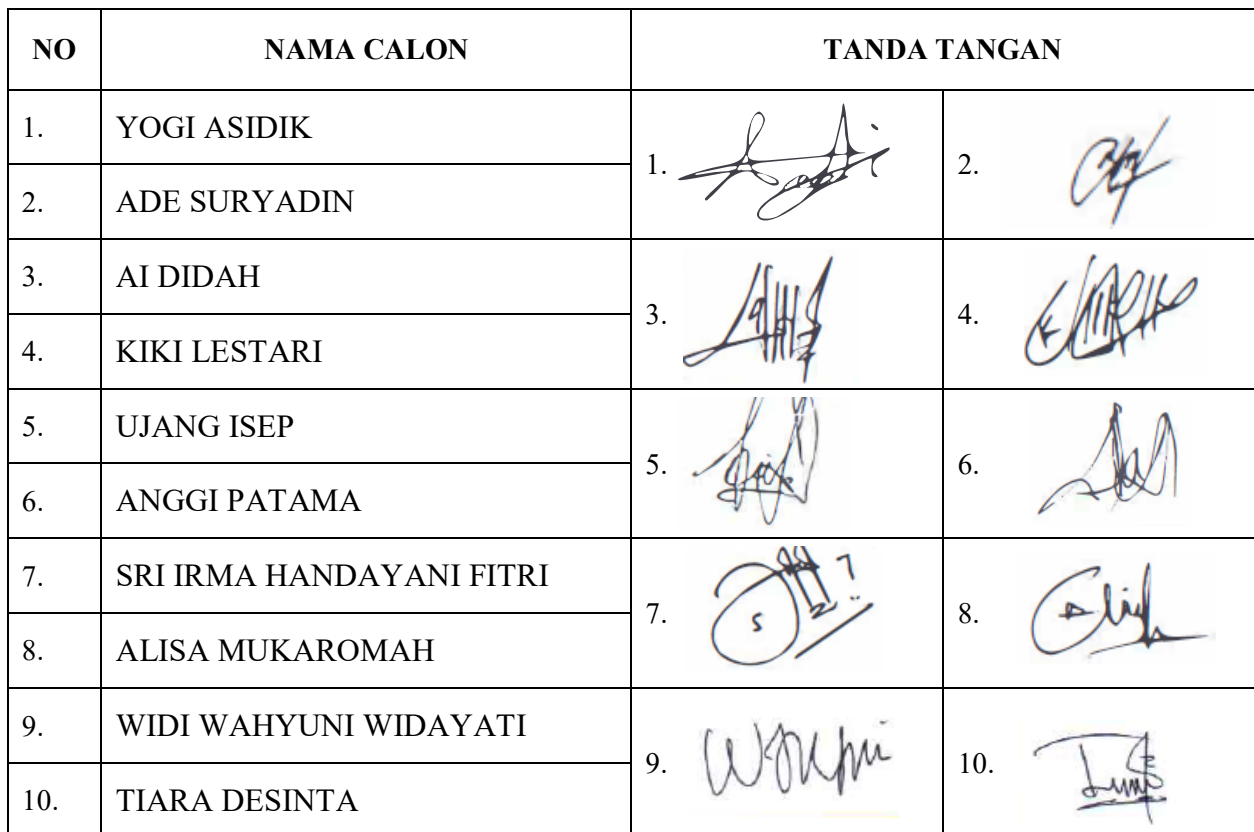 NO NAMA CALON TANDA TANGAN
1. YOGI ASIDIK 1. 2.
2. ADE SURYADIN
3. AI DIDAH 3. 4.
4. KIKI LESTARI
5. UJANG ISEP 5. 6.
6. ANGGI PATAMA
7. SRI IRMA HANDAYANI FITRI 7. 8.
8. ALISA MUKAROMAH
9. WIDI WAHYUNI WIDAYATI 9. 10.
10. TIARA DESINTA